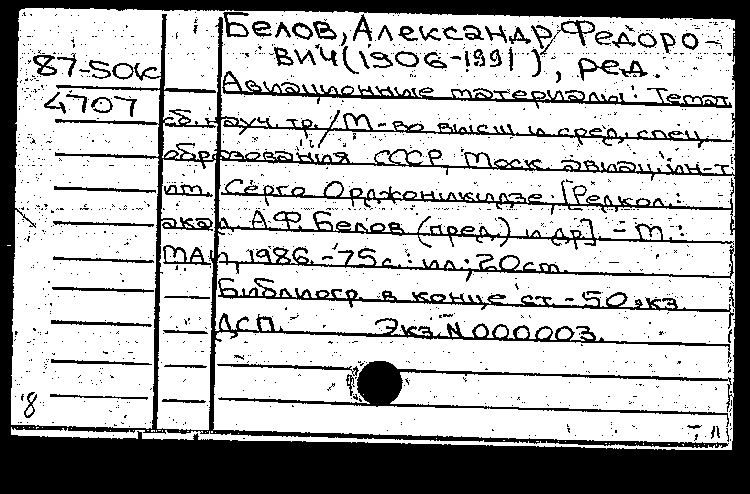 Белов, Александр Федоро-
вич (1906-1991), ред.
87-50к
4707
Авиационные материалы: Темат.
сб. науч. тр. / М-во высш. и сред. спец.
образования СССР, Моск. авиац. ин-т
им. Серго Орджоникидзе, [Редкол.:
акад. А.Ф. Белов (пред.) и др.] - М.:
МАИ, 1986. - 75 с.: ил.; 20 см.
Библиогр. в конце ст. - 50 экз.
ДСП. Экз. N 000003.
'8